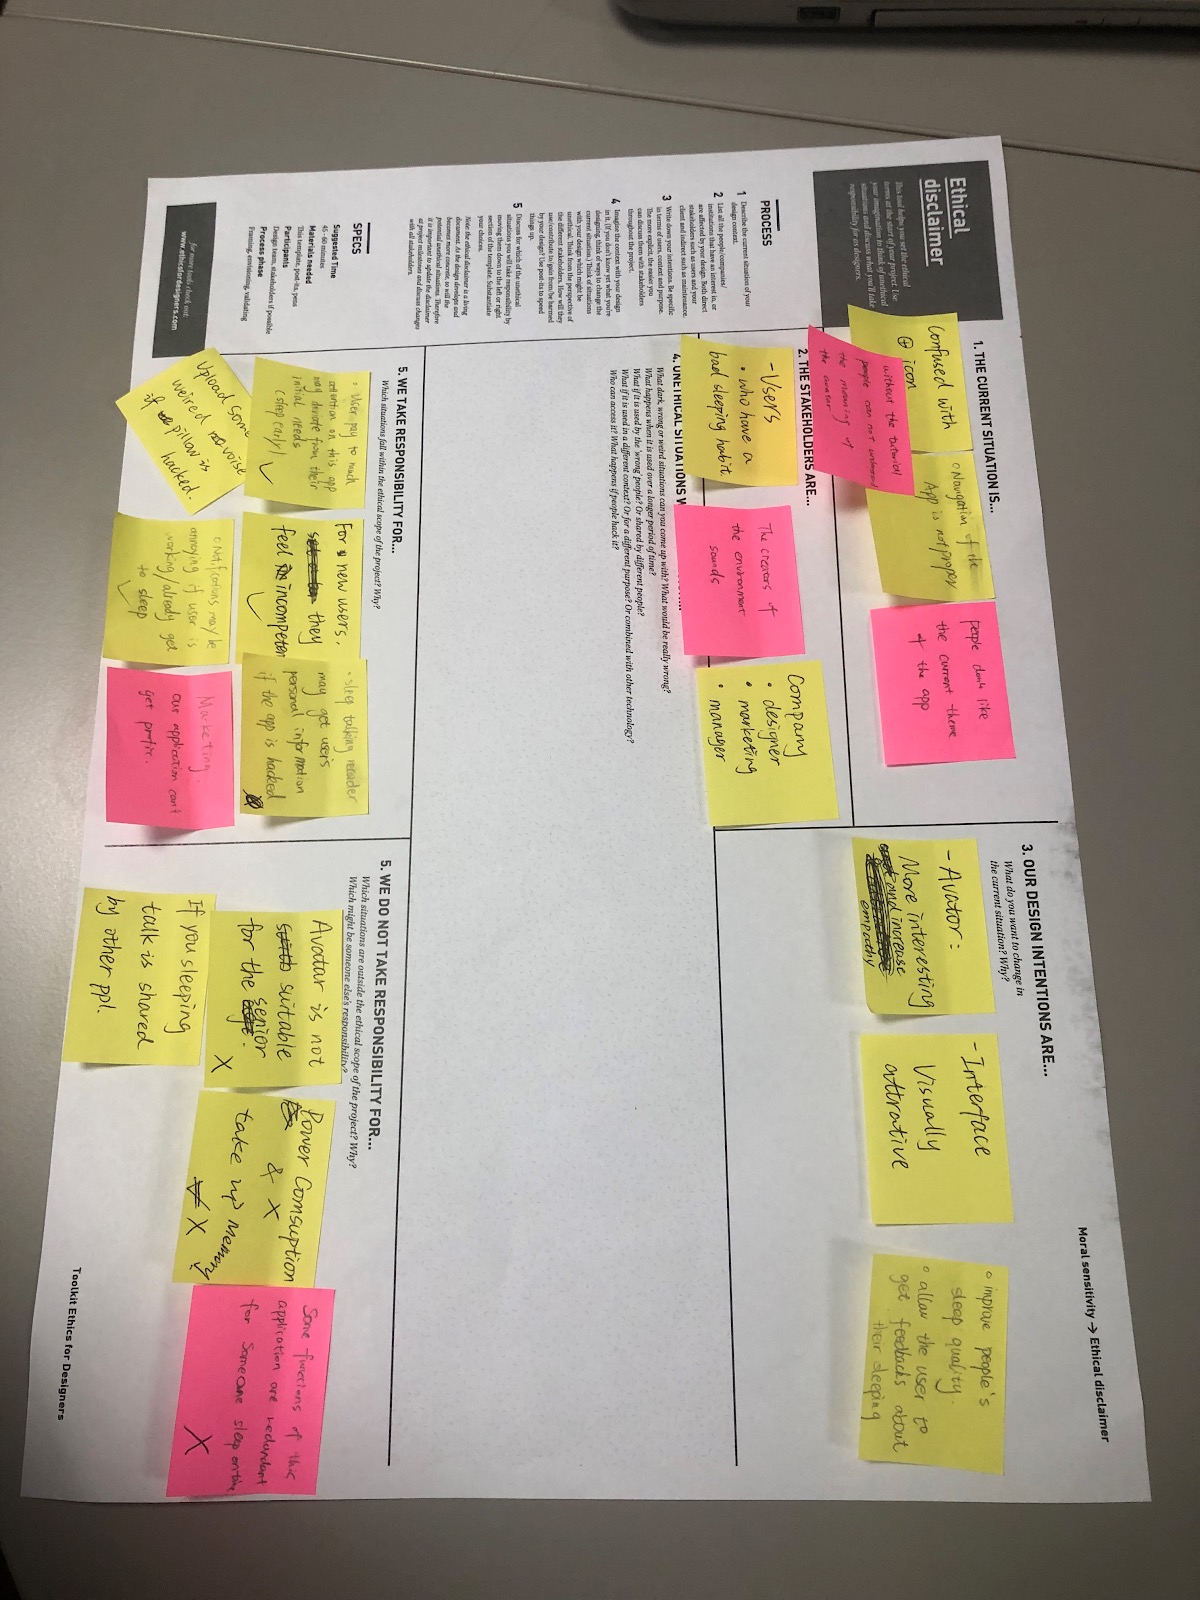 Ethical
disclaimer
This tool helps you set the ethical
terms at the start of your project. Use
your imagination to think of unethical
situations and discuss what you'll take
responsibility for as designers.
PROCESS
1 Describe the current situation of your
design context.
2 List all the people/companies/
institutions that have an interest in, or
are affected by your design. Both direct
stakeholders such as users and your
client and indirect such as maintenance.
3 Write down your intentions. Be specific
in terms of users, context and purpose.
The more explicit, the easier you
can discuss them with stakeholders
throughout the project.
4 Imagine the context with your design
in it. (If you don't know yet what you're
designing, think of ways to change the
current situation.) Think of situations
with your design which might be
unethical. Think from the perspective of
the different stakeholders. How will they
use/contribute to/gain from/be harmed
by your design? Use post-its to speed
things up.
5 Discuss for which of the unethical
situations you will take responsibility by
moving them down to the left or right
section of the template. Substantiate
your choices.
Note: the ethical disclaimer is a living
document. As the design develops and
becomes more concrete, so will the
potential unethical situations. Therefore
it is important to update the disclaimer
at project milestones and discuss changes
with all stakeholders.
SPECS
Suggested Time
45-60 minutes
Materials needed
This template, post-its, pens
Participants
Design team, stakeholders if possible
Process phase
Framing, envisioning, validating
for more tools check out:
www.ethicsfordesigners.com
1. THE CURRENT SITUATION IS...
Confused with
⊕ icon
without the tutorial
people can not understand
the meaning of
the avatar
Navigation of the
App is not proper
people don't like
the current theme
of the app
2. THE STAKEHOLDERS ARE...
- Users
• who have a
bad sleeping habit
The creators of
the environment
sounds
Company
• designer
• marketing
• manager
3. OUR DESIGN INTENTIONS ARE...
What do you want to change in
the current situation? Why?
- Avator:
More interesting
and increase
empathy
- Interface
Visually
attrative
improve people's
sleep quality.
allow the user to
get feedbacks about
their sleeping
4. UNETHICAL SITUATIONS
What dark, wrong or weird situations can you come up with? What would be really wrong?
What happens when it is used over a longer period of time?
What if it is used by the 'wrong' people? Or shared by different people?
What if it is used in a different context? Or for a different purpose? Or combined with other technology?
Who can access it? What happens if people hack it?
5. WE TAKE RESPONSIBILITY FOR...
Which situations fall within the ethical scope of the project? Why?
• User pay to much
attention on this app
may deviate from their
initial needs
(sleep early)
For new users,
they
feel incompeten
• Sleep talking recorder
may get users
personal information
if the app is hacked
Upload some
weired noise
if pillow is
hacked.
Notifications may be
annoying if user is
working/already get
to sleep
Marketing.
our application can't
get profit.
5. WE DO NOT TAKE RESPONSIBILITY FOR...
Which situations are outside the ethical scope of the project? Why?
Which might be someone else's responsibility?
Avatar is not
suitable
for the senior.
X
Power Comsuption
& X
take up memory
X
Some functions of this
application are redundant
for someone sleep on time
X
If you sleeping
talk is shared
by other ppl.
Moral sensitivity → Ethical disclaimer
Toolkit Ethics for Designers